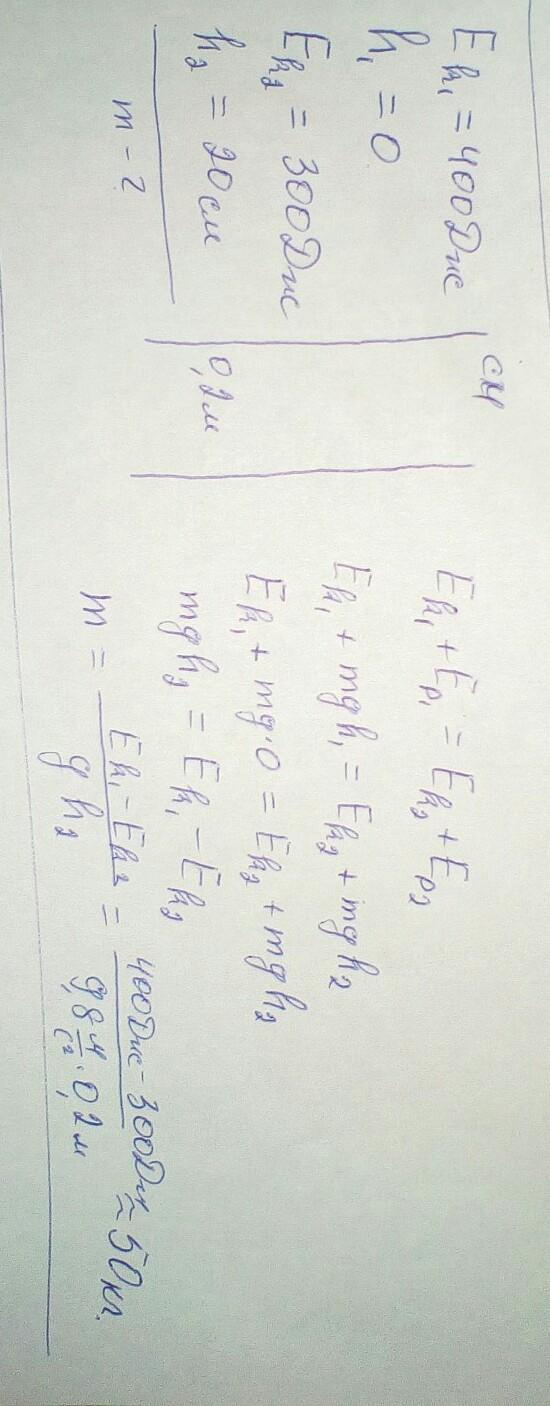 Eк₁ = 400Дж
h₁ = 0
Eк₂ = 300Дж
h₂ = 20см
m - ?
СИ
0,2м
Eк₁ + Eр₁ = Eк₂ + Eр₂
Eк₁ + mgh₁ = Eк₂ + mgh₂
Eк₁ + mg·0 = Eк₂ + mgh₂
mgh₂ = Eк₁ - Eк₂
m = (Eк₁ - Eк₂)/(gh₂) = (400Дж - 300Дж)/(9,8 м/с² · 0,2м) ≈ 50кг.